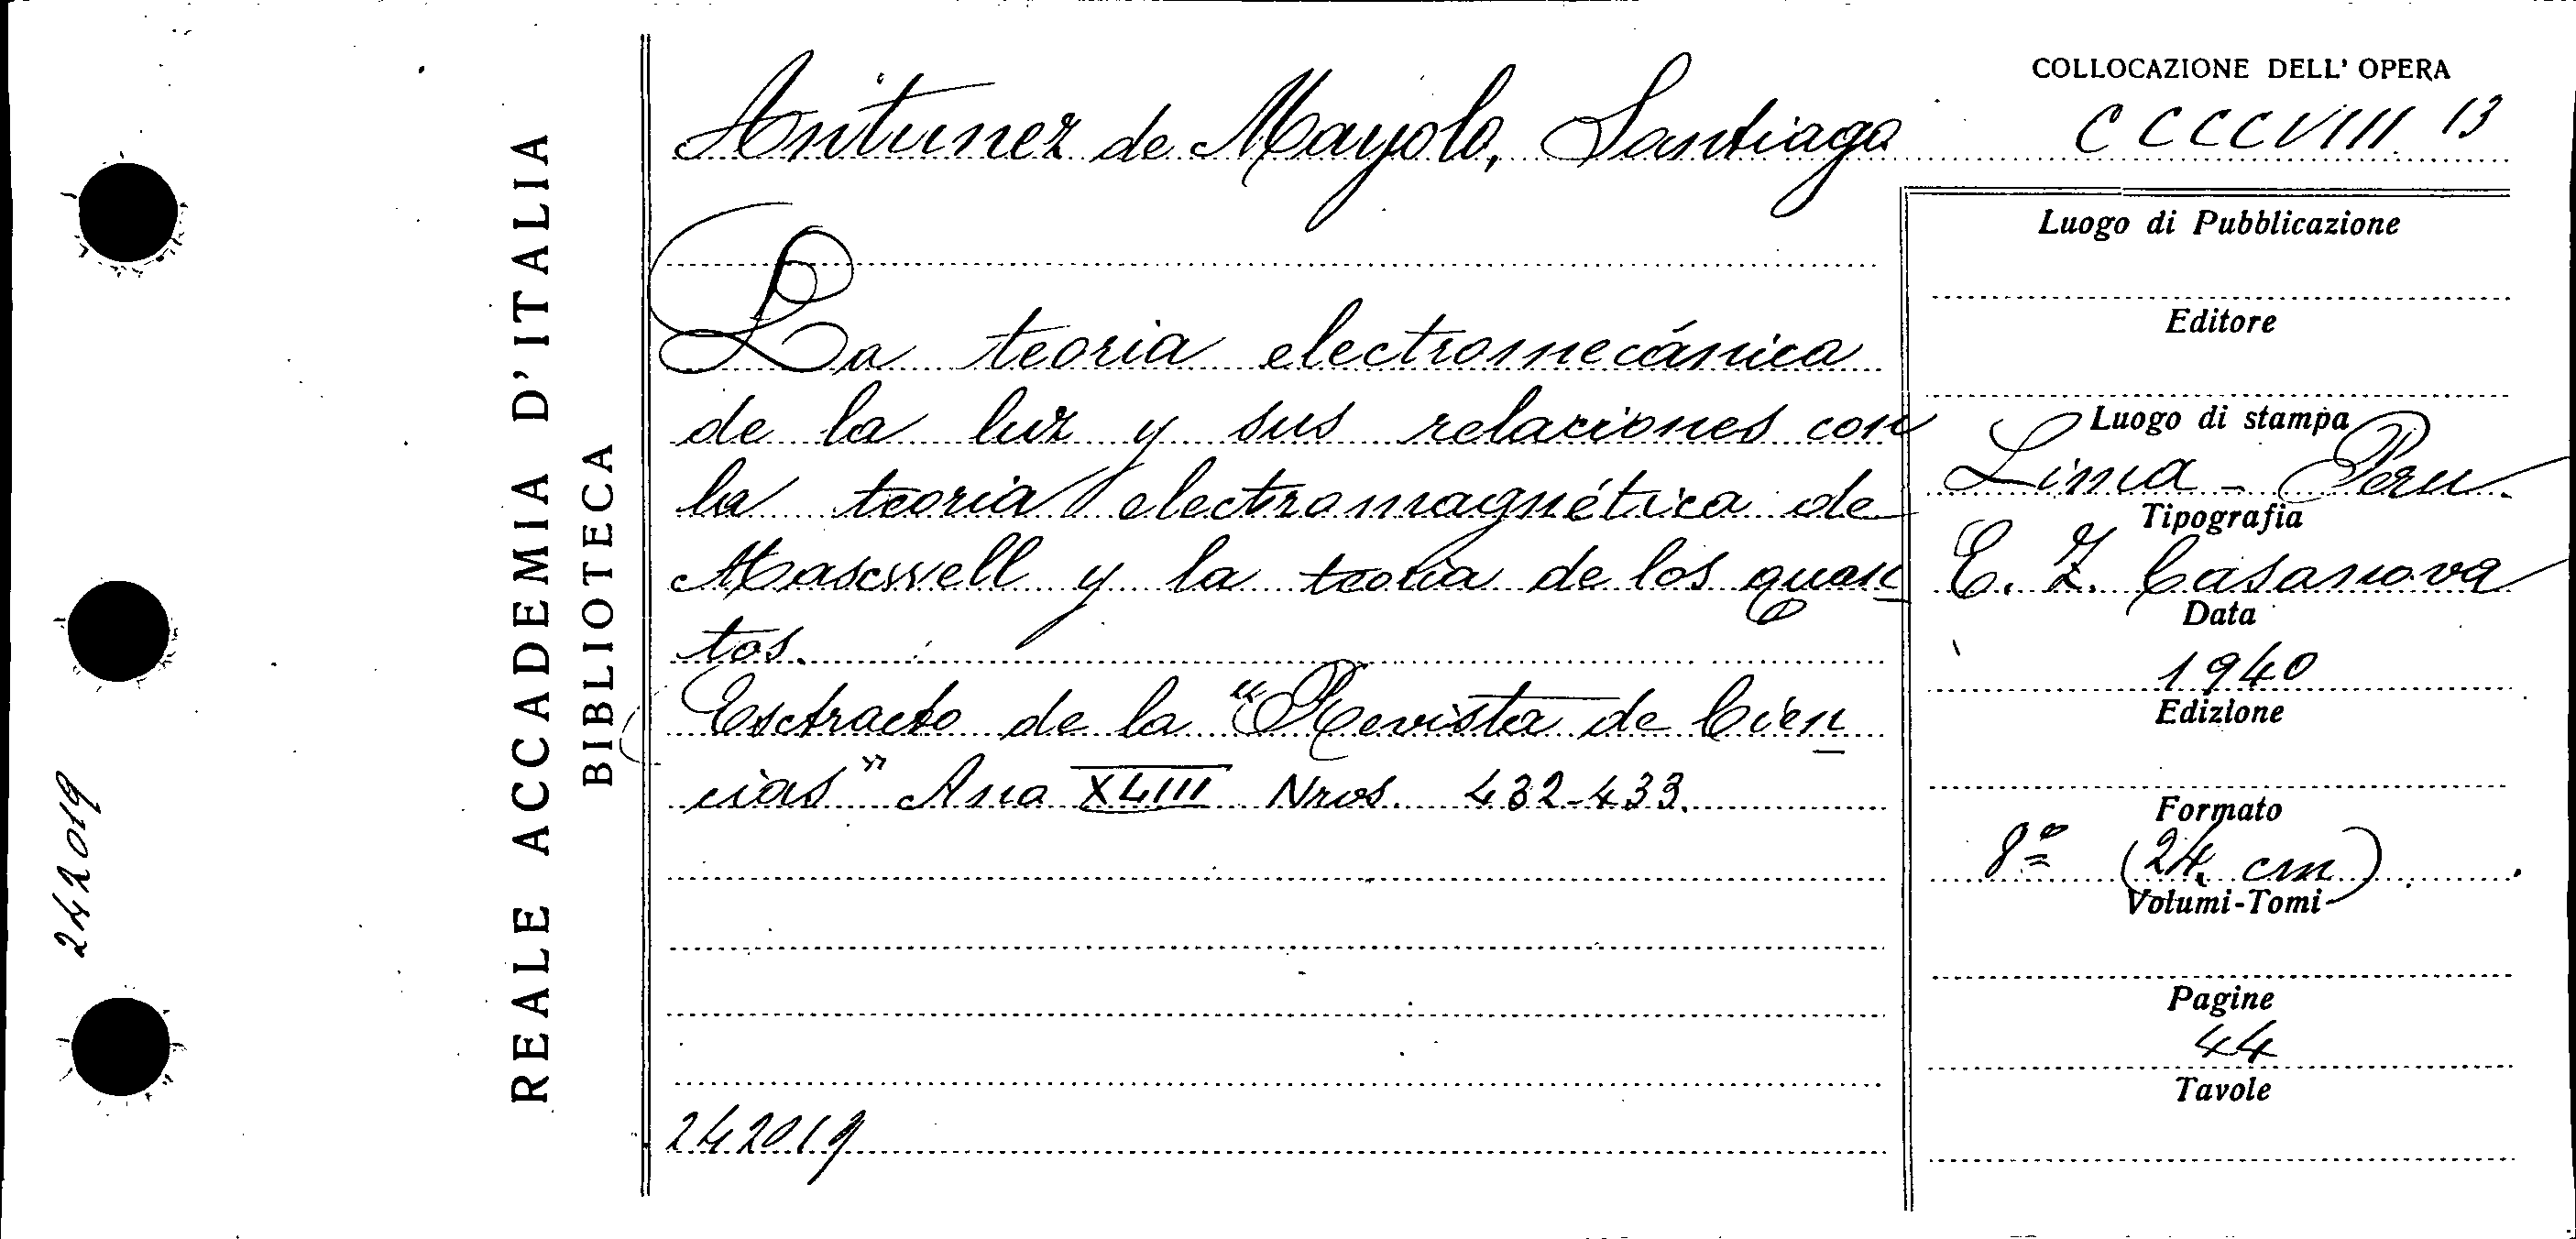 Antunez de Mayolo, Santiago
La teoria electromecánica
de la luz y sus relaciones con
la teoria electromagnética de
Maxwell y la teoria de los quan
tos.
Extracto de la "Revista de Cien
cias" Ano XLIII Nros. 432-433.
242019
COLLOCAZIONE DELL' OPERA
CCCCVIII 13
Luogo di Pubblicazione
Editore
Luogo di stampa
Lima - Peru.
Tipografia
E. Z. Casanova
Data
1940
Edizione
Formato
8º (24 cm)
Volumi-Tomi
Pagine
44
Tavole
REALE ACCADEMIA D'ITALIA
BIBLIOTECA
242019